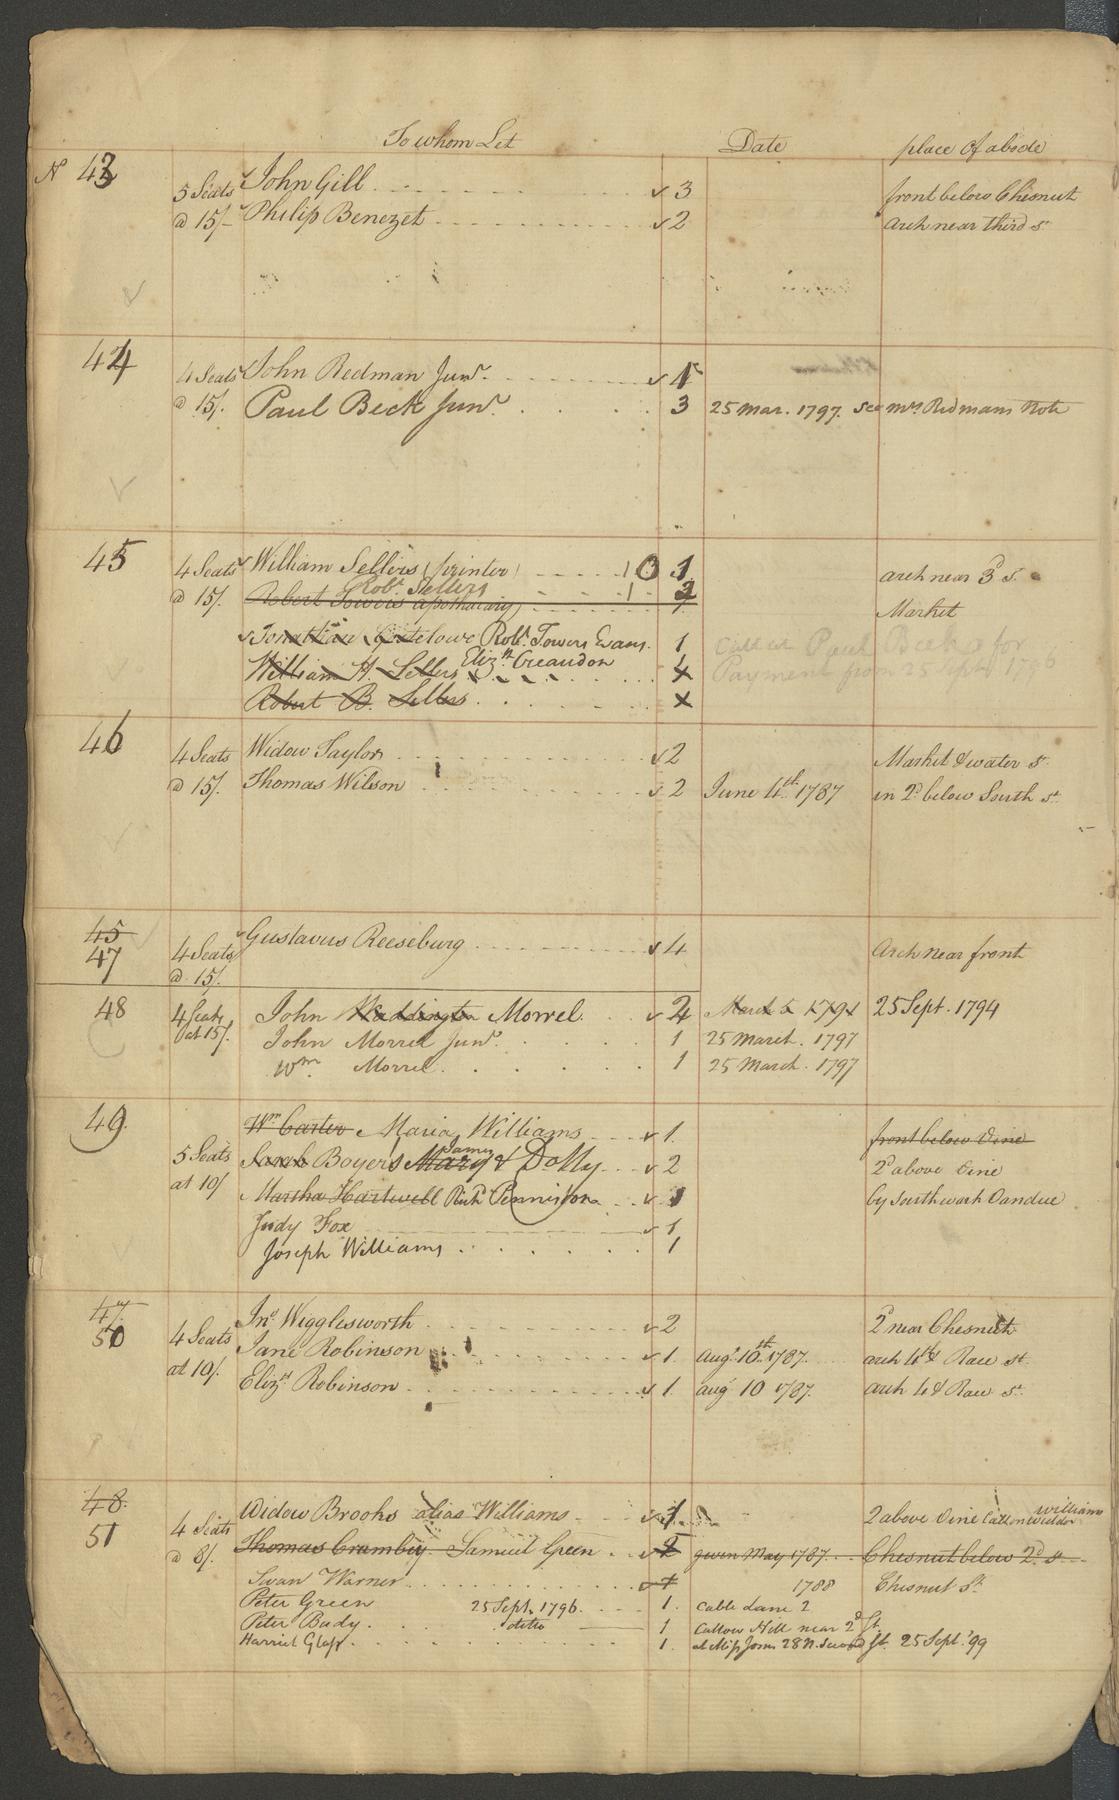 To whom Let Date place of abode
N 43
5 Seats John Gill 3 front below Chesnut
@ 15/- Philip Benezet 2 arch near third St
44
4 Seats John Redman Junr. 1
@ 15/. Paul Beck Junr. 3 25 Mar. 1797. See Mrs Redmans Note
45
4 Seats William Sellers (printer) 1 0 1 arch near 3d S.
Robt. Sellers 1
@ 15/. Robert Towers apothecary Market
Jonathan Robt. Towers Evans. 1 Call at Paul Beck for
William H. Sellers Elizth Creaudon Payment from 25 Sept 1796
Robert B. Sellers x
46
4 Seats Widow Taylor 2 Market & water St.
@ 15/. Thomas Wilson 2 June 4th. 1787 in 2d. below South St
45
47
4 Seats Gustavus Reeseburg 4 Arch near front
@ 15/.
48
4 Seats John Waddington Morrel. 2 March 5 1791 25 Sept. 1794
at 15/. John Morrel Junr. 1 25 March. 1797
Wm. Morrel 1 25 March. 1797
49.
Wm Carter Maria Williams 1. front below Vine
James
5 Seats Sarah Boyers Mary & Dolly 2 2d above Vine
at 10/ Martha Hartwell Richd Penniston 1 by Southwark Vandue
Judy Fox 1
Joseph Williams 1
47.
50
Jno. Wigglesworth 2 2d near Chesnut
4 Seats Jane Robinson 1. Augt. 10th. 1787. arch 4th & Race St.
at 10/. Elizth Robinson 1. aug 10 1787. arch 4 & Race St.
48.
51
williams
Widow Brooks alias Williams 1 2 above Vine Call on Widdow
4 Seats
@ 8/. Thomas Crumbey Samuel Green given May 1787. Chesnut below 2d. st
Swan Warner 1 1788 Chesnut St.
Peter Green 25 Sept. 1796. 1. Cable Lane 2
Peter Budy. ditto 1 Callow Hill near 2d St.
Harriet Glass. 1. at Miss Jones 28 N. Second St. 25 Sept. '99